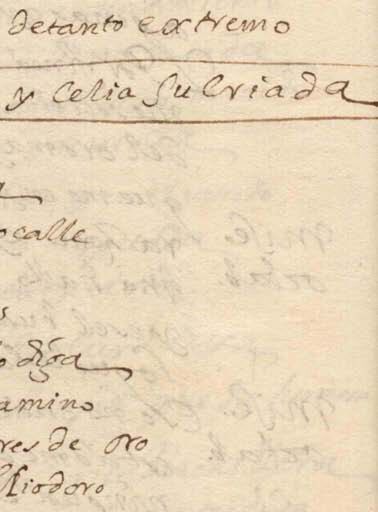 detanto extremo
y Celia Su Criada
ocalle
diga
amino
res de oro
liodoro